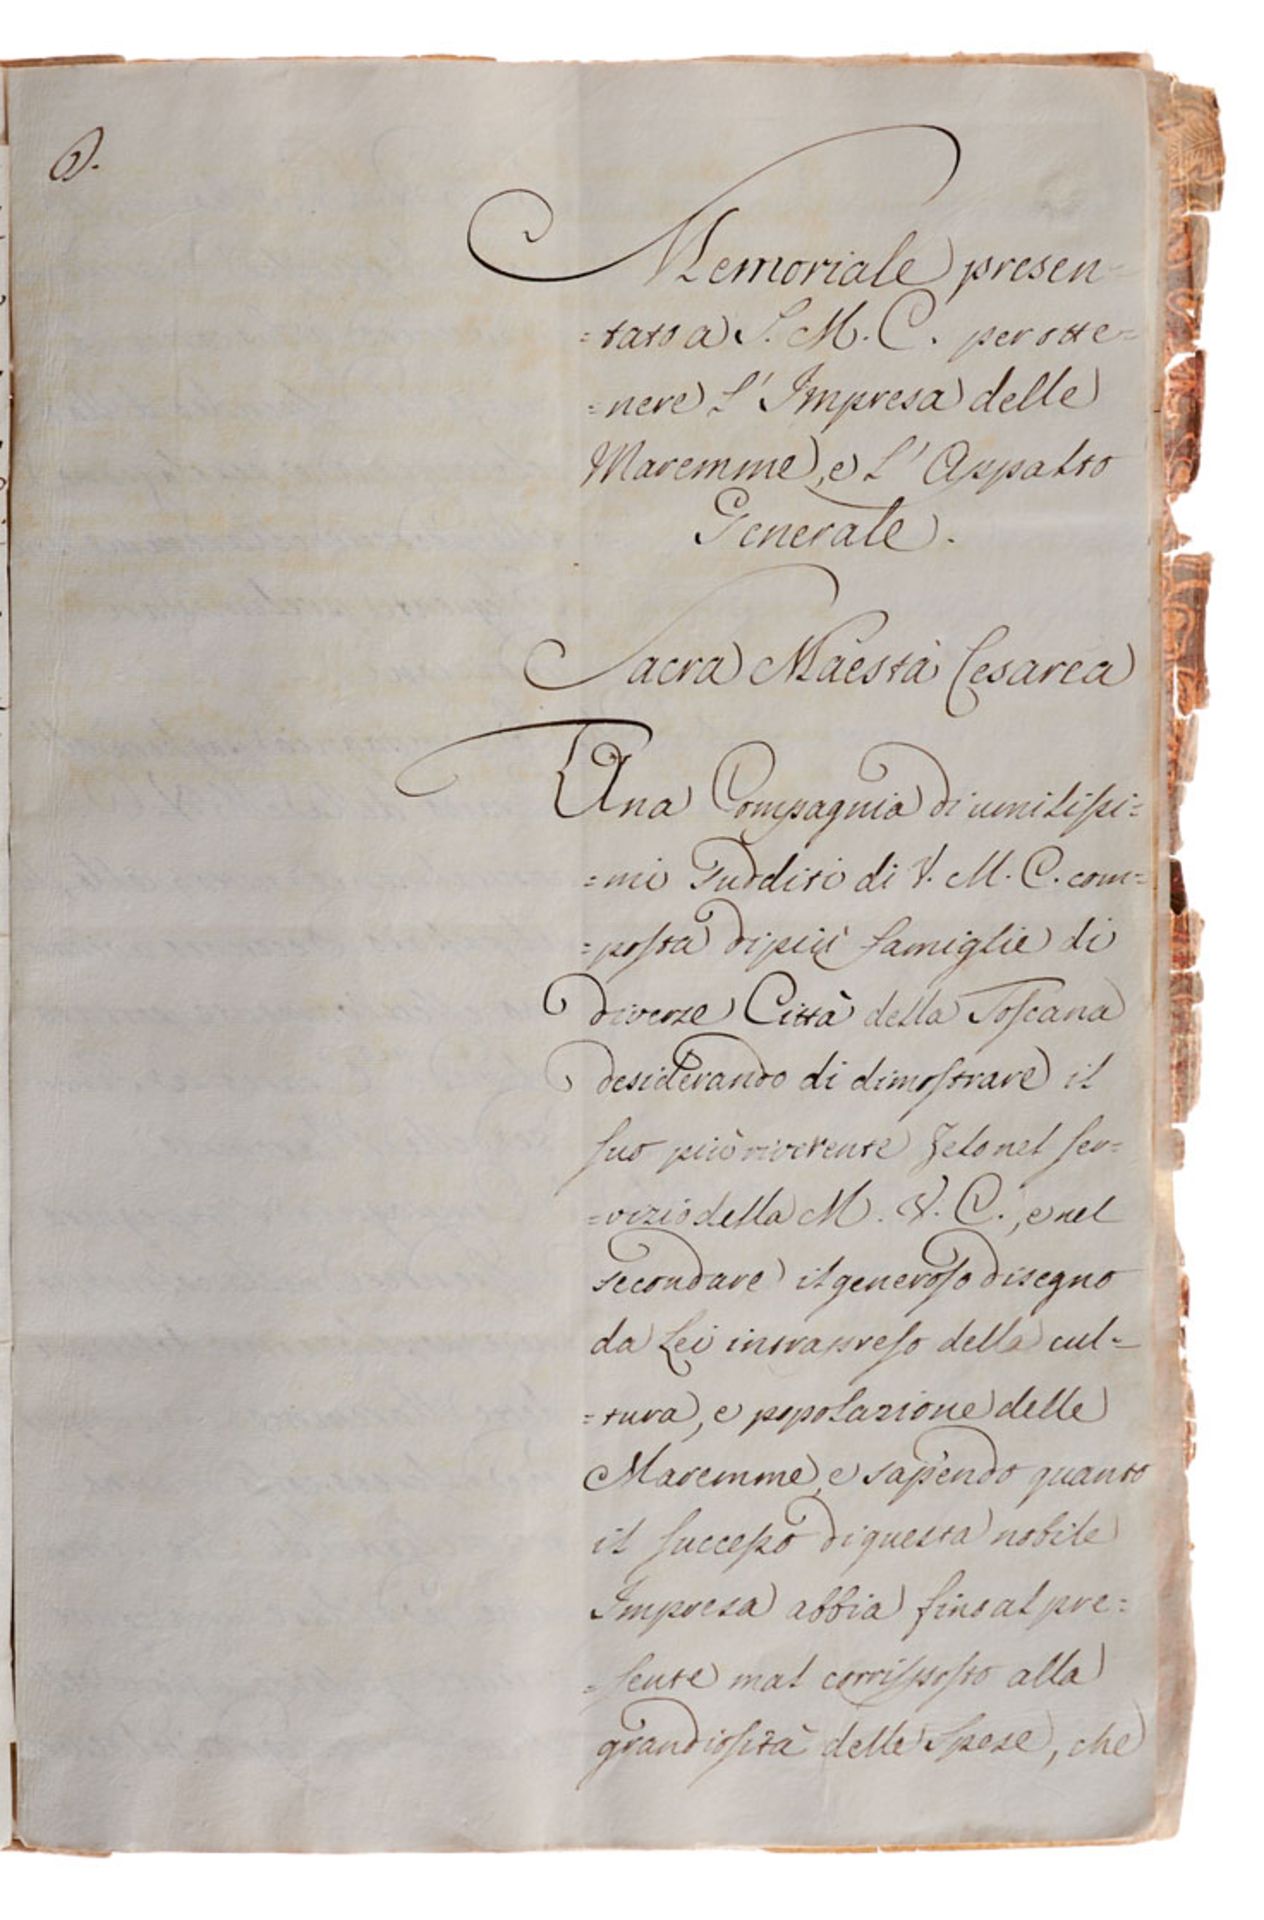 1).
Memoriale presen=
=tato a S. M. C. per otte=
=nere L' Impresa delle
Maremme, e L' Appalto
Generale.
Sacra Maestà Cesarea
Una Compagnia di umilissi=
=mi Sudditi di V. M. C. com=
=posta di più famiglie di
diverse Città della Toscana
desiderando di dimostrare il
suo più riverente Zelo nel ser=
=vizio della M. V. C., e nel
secondare il generoso disegno
da Lei intrapreso della cul=
=tura, e popolazione delle
Maremme, e sapendo quanto
il successo di questa nobile
Impresa abbia fino al pre=
=sente mal corrisposto alla
grandiosità delle Spese, che